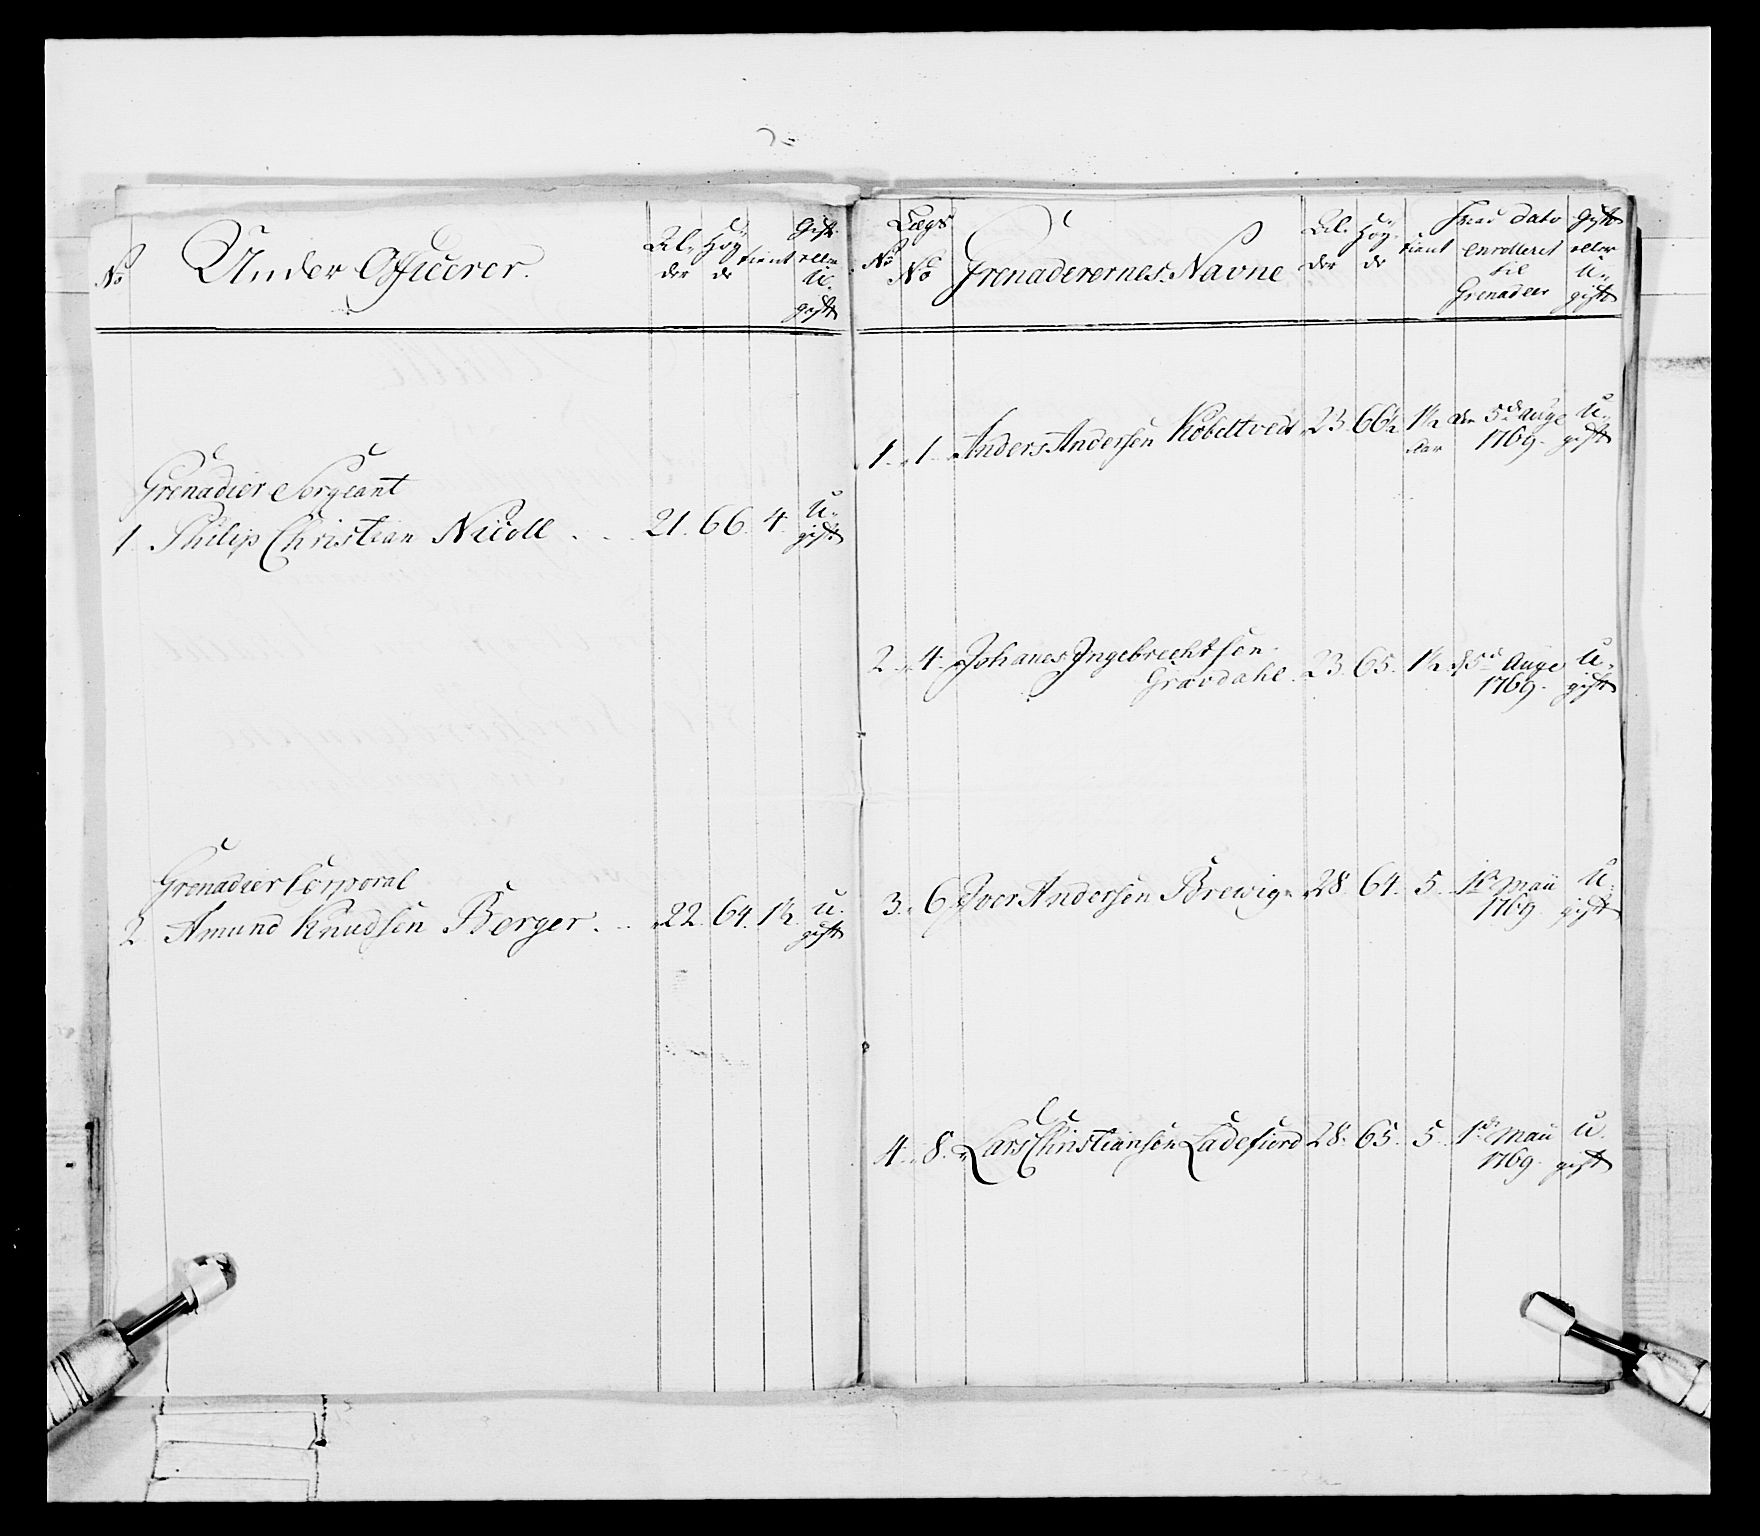 No
Under Officerer.
Al-
der
Höy
de
tient
Gift
eller
U-
gift
Grenadier Sergeant
1. Philip Christian Nicoll . . . 21. 66. 4. U-
gift
Grenadier Corporal
2. Amund Knudsen Berger. . . 22. 64. 1½. u.
gift
No
Lægs
No
Grenaderernes Navne
Al-
der
Höy-
de
tient
hvad Dato
enrolleret
til
Grenadeer
Gift
eller
U-
gift
1. 1. Anders Andersen Kobeltvedt 23. 66½ 1½ den 5d Augs U-
Aar 1769. gift
2. 4. Johanes Ingebrechtsen
Gravdahl. 23. 65. 1½. d 5d Augs U-
1769. gift
3. 6. Iver Andersen Brewig 28. 64. 5. 1te Maii U.
1769. gift
4. 8. Lars Christiansen Ladefiord 28. 65. 5. 1d Maii U.
1769. gift